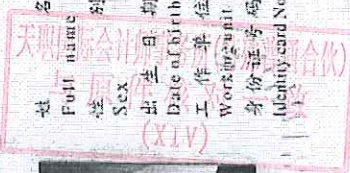 姓 名
Full name
性 别
Sex
出生日期
Date of birth
工作单位
Working unit
身份证号码
Identity card No
天职国际会计师事务所(特殊普通合伙)
(XIV)